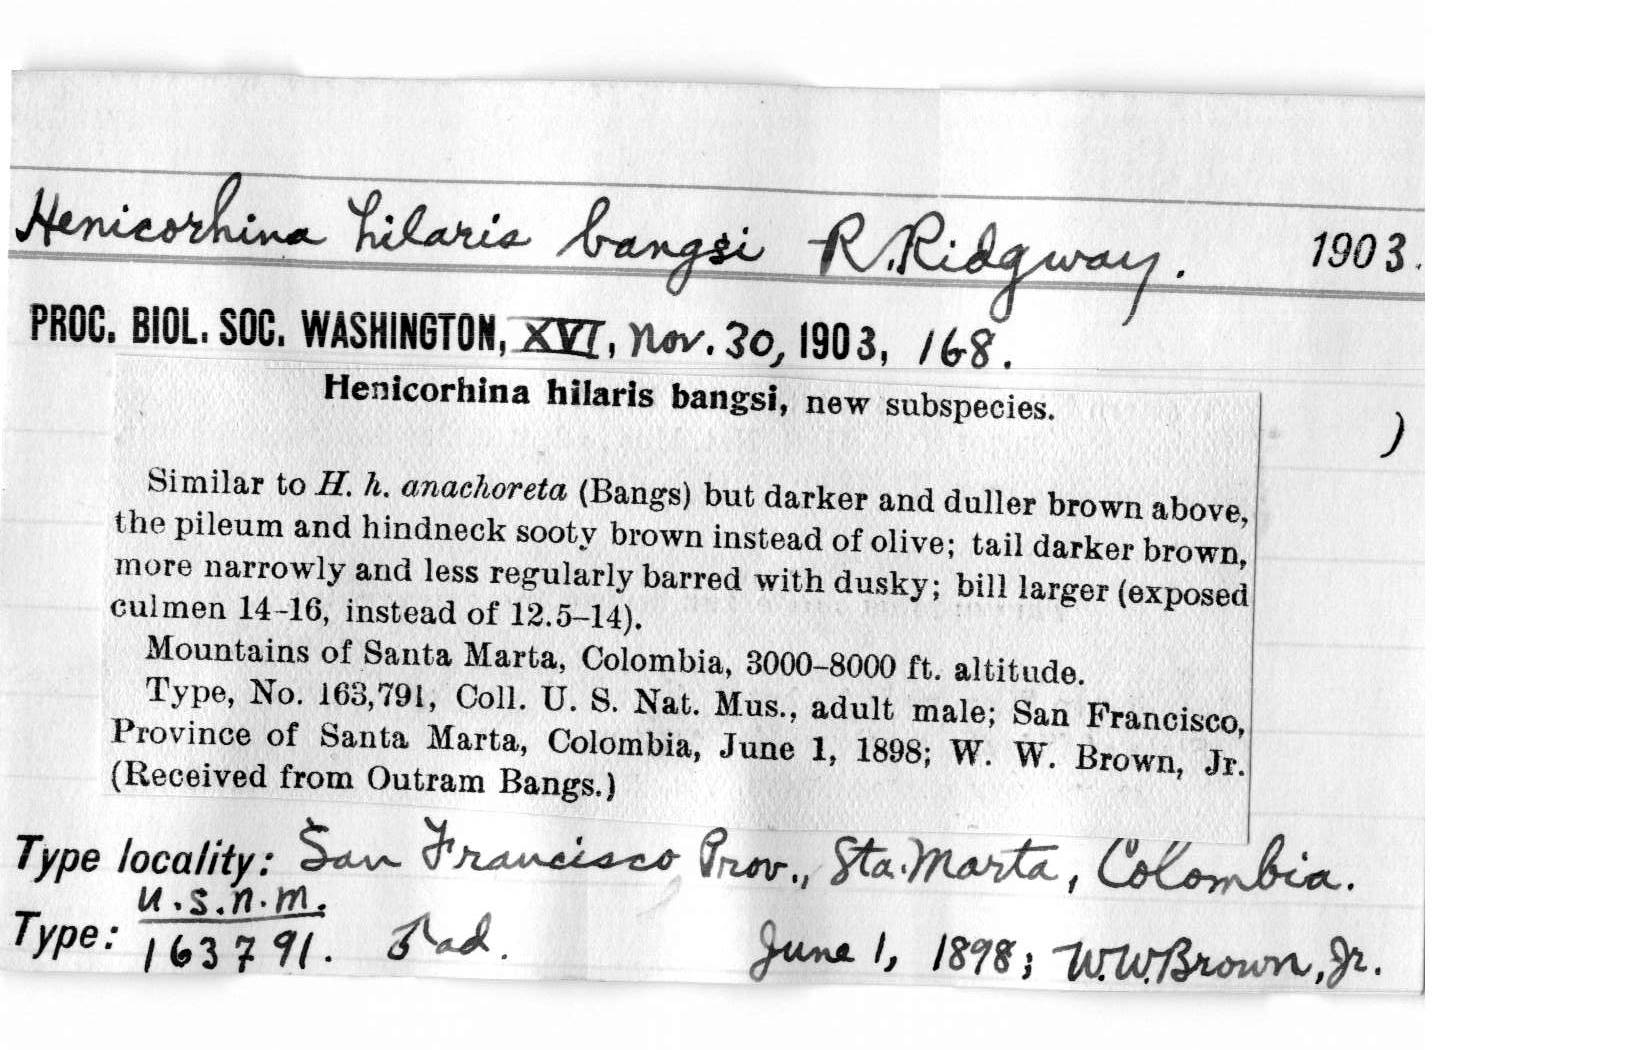 Henicorhina hilaris bangsi R. Ridgway. 1903.
PROC. BIOL. SOC. WASHINGTON, XVI, Nov. 30, 1903, 168.
Henicorhina hilaris bangsi, new subspecies.
)
Similar to H. h. anachoreta (Bangs) but darker and duller brown above,
the pileum and hindneck sooty brown instead of olive; tail darker brown,
more narrowly and less regularly barred with dusky; bill larger (exposed
culmen 14–16, instead of 12.5–14).
Mountains of Santa Marta, Colombia, 3000–8000 ft. altitude.
Type, No. 163,791, Coll. U. S. Nat. Mus., adult male; San Francisco,
Province of Santa Marta, Colombia, June 1, 1898; W. W. Brown, Jr.
(Received from Outram Bangs.)
Type locality: San Francisco Prov., Sta. Marta, Colombia.
U.S.N.M.
Type: 163791. ad. June 1, 1898; W.W. Brown, Jr.